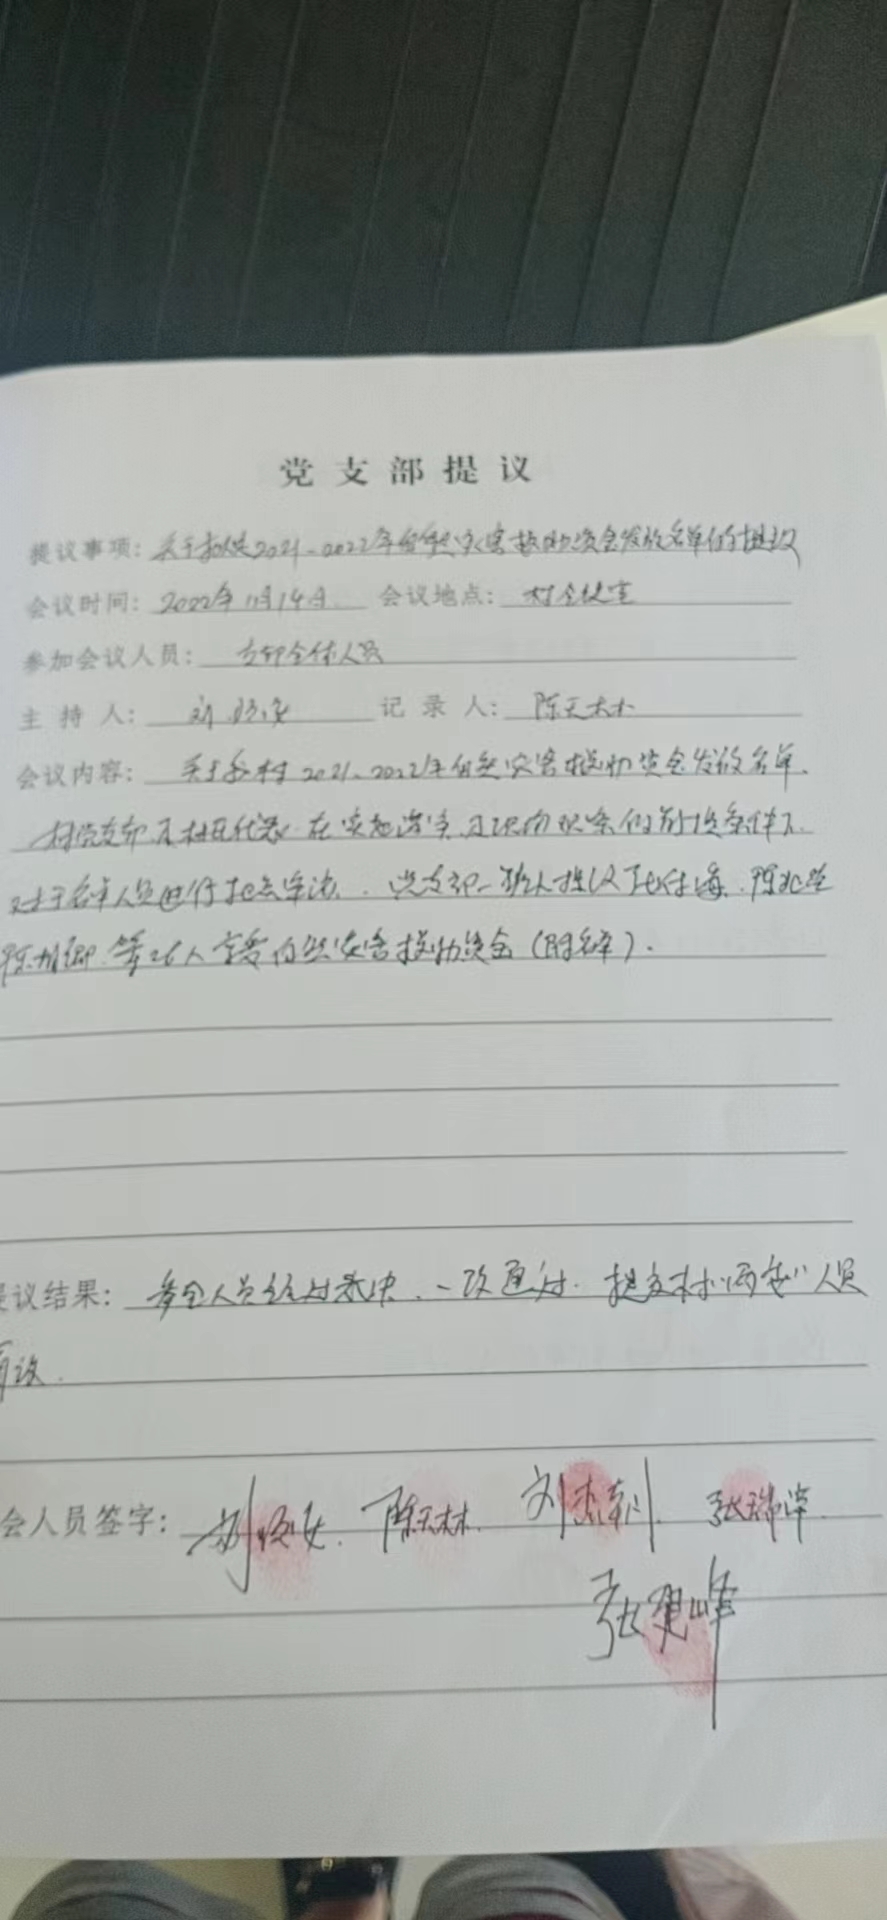 党支部提议
提议事项：关于拟定2021-2022年自然灾害救助资金发放名单的提议
会议时间：2022年11月14日 会议地点：村会议室
参加会议人员：支部全体人员
主持人：刘 记录人：陈天林
会议内容：关于我村2021-2022年自然灾害救助资金发放名单.
村党支部及村民代表在实地
对于名单人员进行 党支部一班人提议
等26人享受自然灾害救助资金（附名单）.
提议结果：参会人员经过表决，一致通过.提交村"两委"人员
商议.
会人员签字：刘 陈天林 刘 张瑞
张建峰